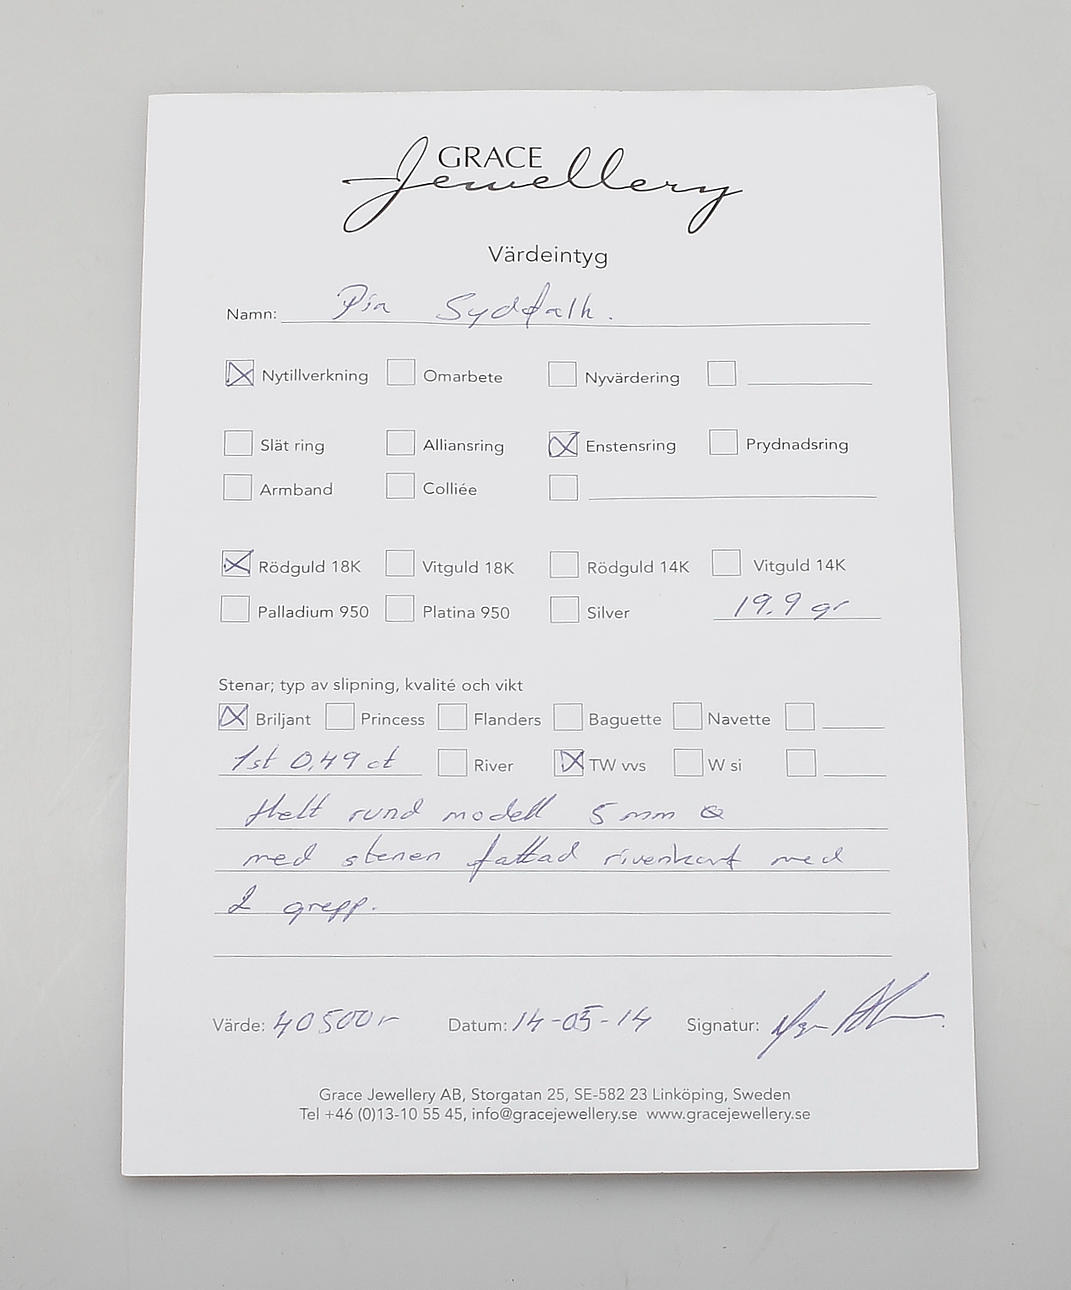 GRACE
Jewellery
Värdeintyg
Namn: Pia
Nytillverkning Omarbete Nyvärdering
Slät ring Alliansring Enstensring Prydnadsring
Armband Colliée
Rödguld 18K Vitguld 18K Rödguld 14K Vitguld 14K
Palladium 950 Platina 950 Silver 19.9 gr
Stenar; typ av slipning, kvalité och vikt
Briljant Princess Flanders Baguette Navette
1st 0,49 ct River TW vvs W si
Helt rund modell 5 mm
med stenen fattad med
2 grepp.
Värde: 40500:- Datum: 14-05-14 Signatur:
Grace Jewellery AB, Storgatan 25, SE-582 23 Linköping, Sweden
Tel +46 (0)13-10 55 45, info@gracejewellery.se www.gracejewellery.se